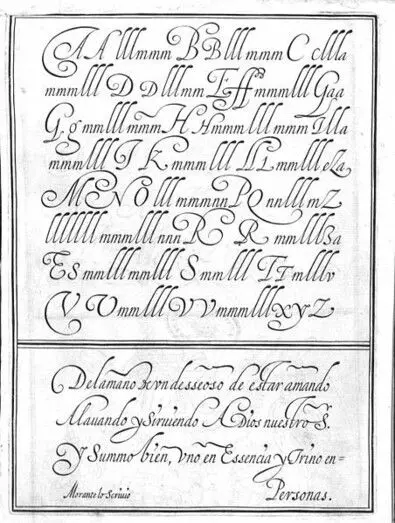 A A lllmmm B B lll mmm C clllla
mmmlll D D lllmm E ff mmmlll Gaa
G g mmlll mm H Hmmm lll mmm Illa
mmm lll I K mmm lll L L mmlll eZa
M N O lll mmmnn P Q nnlll mZ
lllllll mmmlll nnn R R mmlllBa
E S mmlllmmlll S mmlll T T mlllv
V V mmlll V V mmmlllxyZ
Dela mano de vn desseoso de estar amando
Alauando y Siruiendo A Dios nuestro S.
Y Summo bien, vno en Essencia y Trino en=
Morante lo Scriuio Personas.